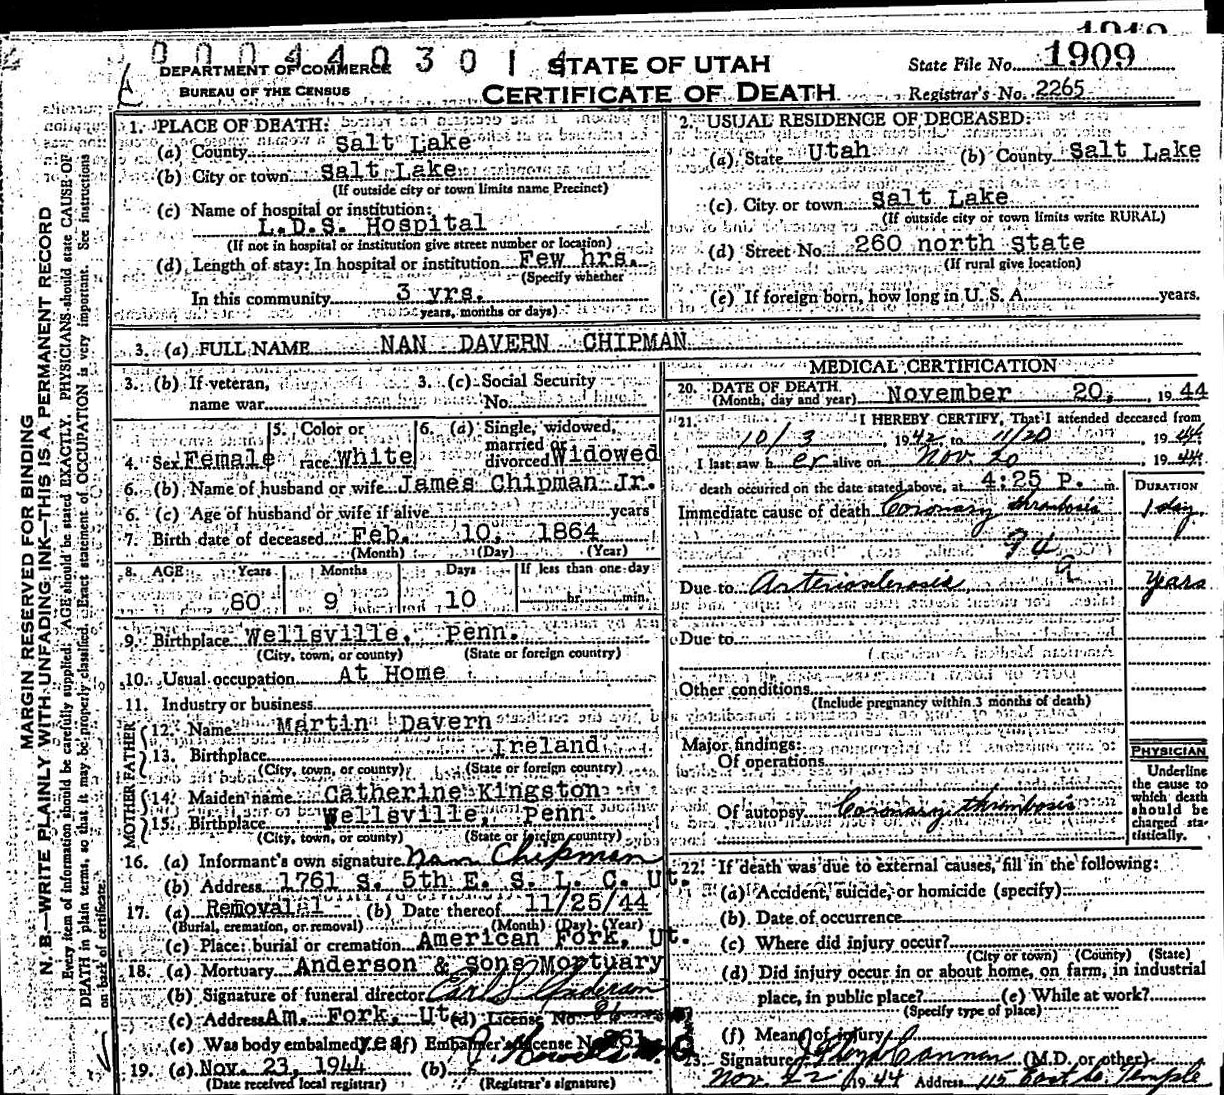 0004403014
DEPARTMENT OF COMMERCE
BUREAU OF THE CENSUS
STATE OF UTAH
CERTIFICATE OF DEATH
State File No. 1909
Registrar's No. 2265
MARGIN RESERVED FOR BINDING
N. B.—WRITE PLAINLY WITH UNFADING INK—THIS IS A PERMANENT RECORD
Every item of information should be carefully supplied. AGE should be stated EXACTLY. PHYSICIANS should state CAUSE OF
DEATH in plain terms, so that it may be properly classified. Exact statement of OCCUPATION is very important. See instructions
on back of certificate.
1. PLACE OF DEATH:
(a) County Salt Lake
(b) City or town Salt Lake
(If outside city or town limits name Precinct)
(c) Name of hospital or institution:
L.D.S. Hospital
(If not in hospital or institution give street number or location)
(d) Length of stay: In hospital or institution Few hrs.
(Specify whether
In this community 3 yrs.
years, months or days)
2. USUAL RESIDENCE OF DECEASED:
(a) State Utah (b) County Salt Lake
(c) City or town Salt Lake
(If outside city or town limits write RURAL)
(d) Street No. 260 north State
(If rural give location)
(e) If foreign born, how long in U. S. A. years.
3. (a) FULL NAME NAN DAVERN CHIPMAN
3. (b) If veteran, name war
3. (c) Social Security No.
4. Sex Female
5. Color or race White
6. (a) Single, widowed, married or divorced Widowed
6. (b) Name of husband or wife James Chipman Jr.
6. (c) Age of husband or wife if alive years
7. Birth date of deceased Feb. 10, 1864
(Month) (Day) (Year)
8. AGE Years Months Days If less than one day
80 9 10 hr. min.
9. Birthplace Wellsville, Penn.
(City, town, or county) (State or foreign country)
10. Usual occupation At Home
11. Industry or business
FATHER
12. Name Martin Davern
13. Birthplace Ireland
(City, town, or county) (State or foreign country)
MOTHER
14. Maiden name Catherine Kingston
15. Birthplace Wellsville, Penn.
(City, town, or county) (State or foreign country)
16. (a) Informant's own signature Nam Chipman
(b) Address 1761 S. 5th E. S. L. C. Ut.
17. (a) Removal (b) Date thereof 11/25/44
(Burial, cremation, or removal) (Month) (Day) (Year)
(c) Place: burial or cremation American Fork, Ut.
18. (a) Mortuary Anderson & Sons Mortuary
(b) Signature of funeral director Earl S Anderson
(c) Address Am. Fork, Ut. (d) License No.
(e) Was body embalmed yes (f) Embalmer's License No. 261
19. (a) Nov. 23, 1944 (b)
(Date received local registrar) (Registrar's signature)
MEDICAL CERTIFICATION
20. DATE OF DEATH
(Month, day and year) November 20, 1944
21. I HEREBY CERTIFY, That I attended deceased from
10/3, 1942 to 11/20, 1944
I last saw her alive on Nov. 20, 1944
death occurred on the date stated above, at 4:25 P. m.
DURATION
Immediate cause of death Coronary thrombosis 1 day
94 a
Due to Arteriosclerosis years
Due to
Other conditions
(Include pregnancy within 3 months of death)
Major findings:
Of operations
Of autopsy Coronary thrombosis
PHYSICIAN
Underline
the cause to
which death
should be
charged sta-
tistically.
22. If death was due to external causes, fill in the following:
(a) Accident, suicide, or homicide (specify)
(b) Date of occurrence
(c) Where did injury occur?
(City or town) (County) (State)
(d) Did injury occur in or about home, on farm, in industrial
place, in public place? (e) While at work?
(Specify type of place)
(f) Means of injury
23. Signature J Floyd Cannon (M.D. or other)
Nov 22 1944 Address 115 East So. Temple